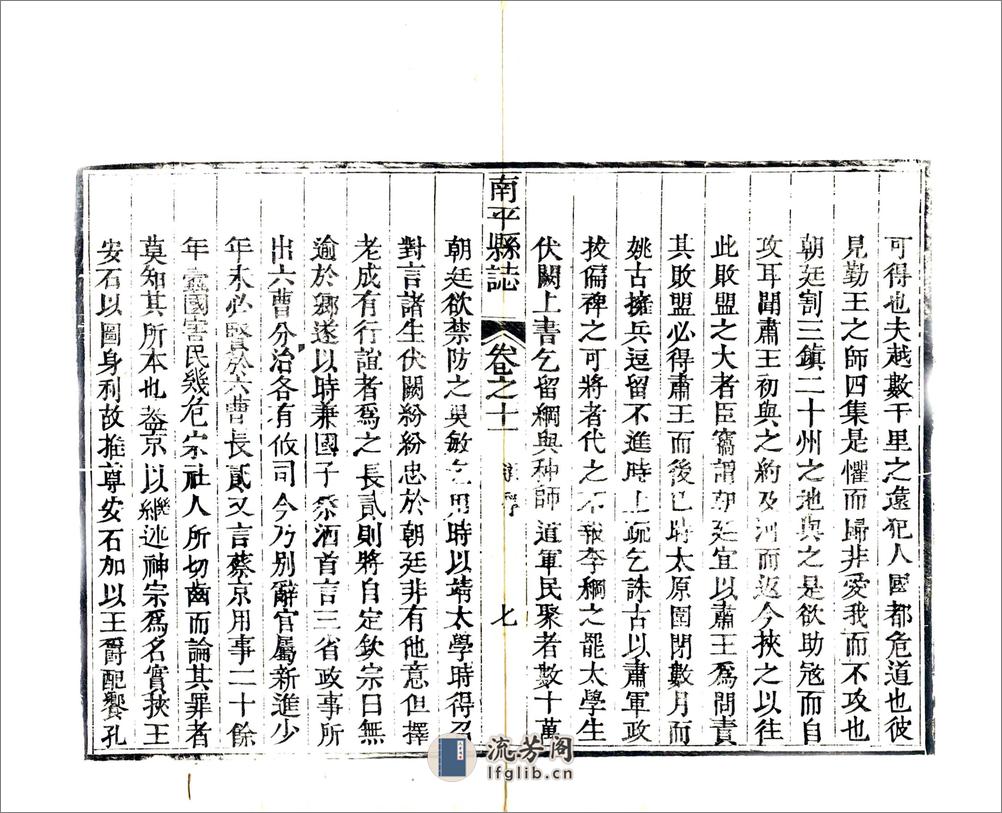 可得也夫越數千里之遠犯人國都危道也彼
見勤王之師四集是懼而歸非愛我而不攻也
朝廷割三鎮二十州之地與之是欲助寇而自
攻耳聞肅王初與之約及河而返今挾之以往
此敗盟之大者臣竊謂朝廷宜以肅王為問責
其敗盟必得肅王而後已時太原圍閉數月而
姚古擁兵逗留不進時上疏乞誅古以肅軍政
拔偏裨之可將者代之不報李綱之罷太學生
伏闕上書乞留綱與种師道軍民聚者數十萬
南平縣誌
卷之十
七
朝廷欲禁防之吳敏乞用時以靖太學時得召
對言諸生伏闕紛紛忠於朝廷非有他意但擇
老成有行誼者爲之長貳則將自定欽宗曰無
逾於鄉遂以時兼國子祭酒首言三省政事所
出六曹分治各有攸司今乃別辭官屬新進少
年未必賢於六曹長貳又言蔡京用事二十餘
年蠧國害民幾危宗社人所切齒而論其罪者
莫知其所本也蓋京以繼述神宗爲名實挾王
安石以圖身利故推尊安石加以王爵配饗孔
流芳阁
lfglib.cn